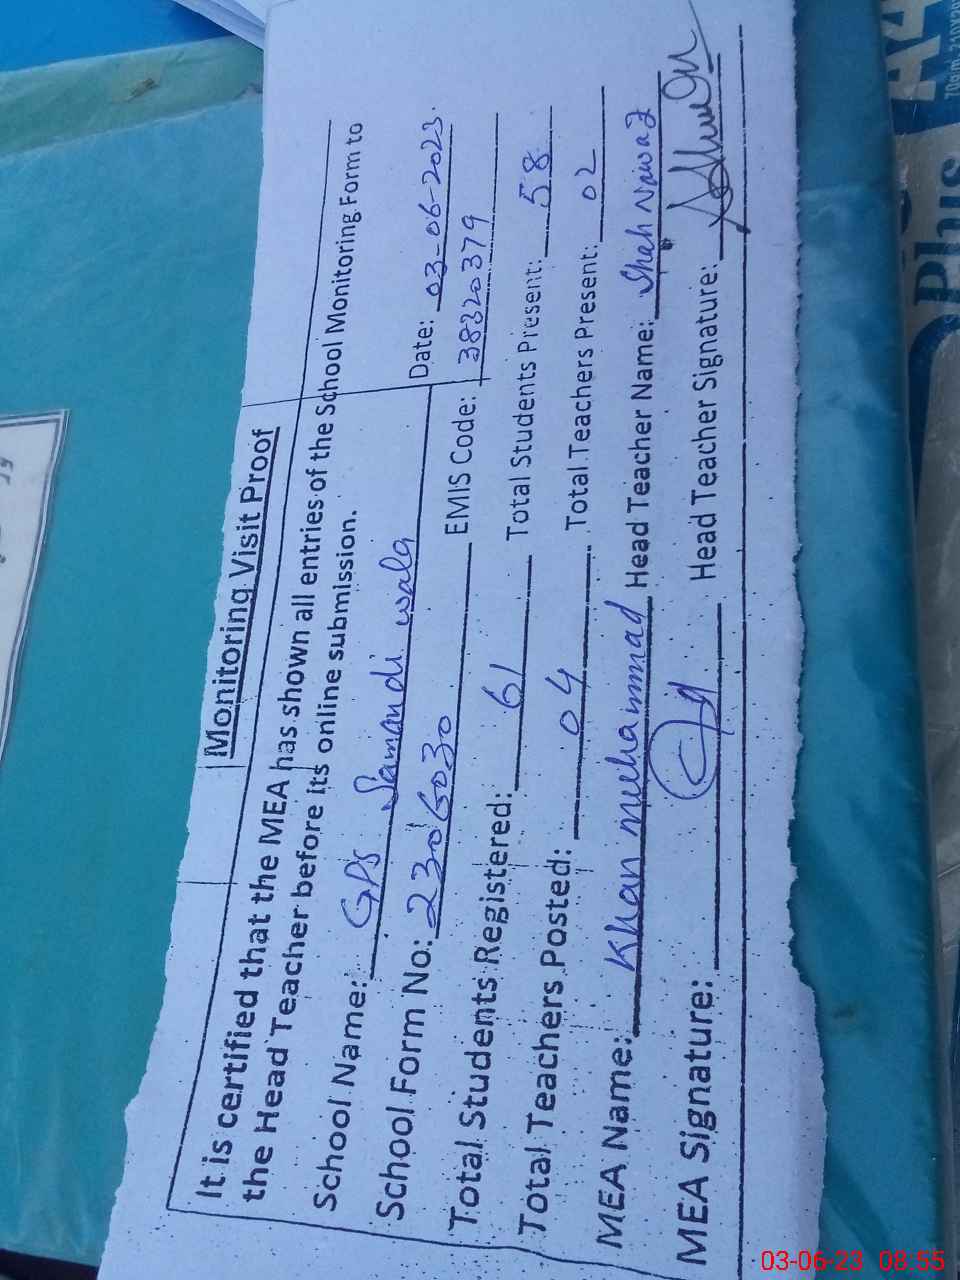 Monitoring Visit Proof
It is certified that the MEA has shown all entries of the School Monitoring Form to
the Head Teacher before its online submission.
School Name: GPS Samandi wala Date: 03-06-2023
School Form No: 2306030 EMIS Code: 38320379
Total Students Registered: 61 Total Students Present: 58
Total Teachers Posted: 04 Total Teachers Present: 02
MEA Name: Khan Muhammad Head Teacher Name: Shah Nawaz
MEA Signature: Head Teacher Signature:
A4
70gsm, 210X29
Plus
03-06-23 08:55